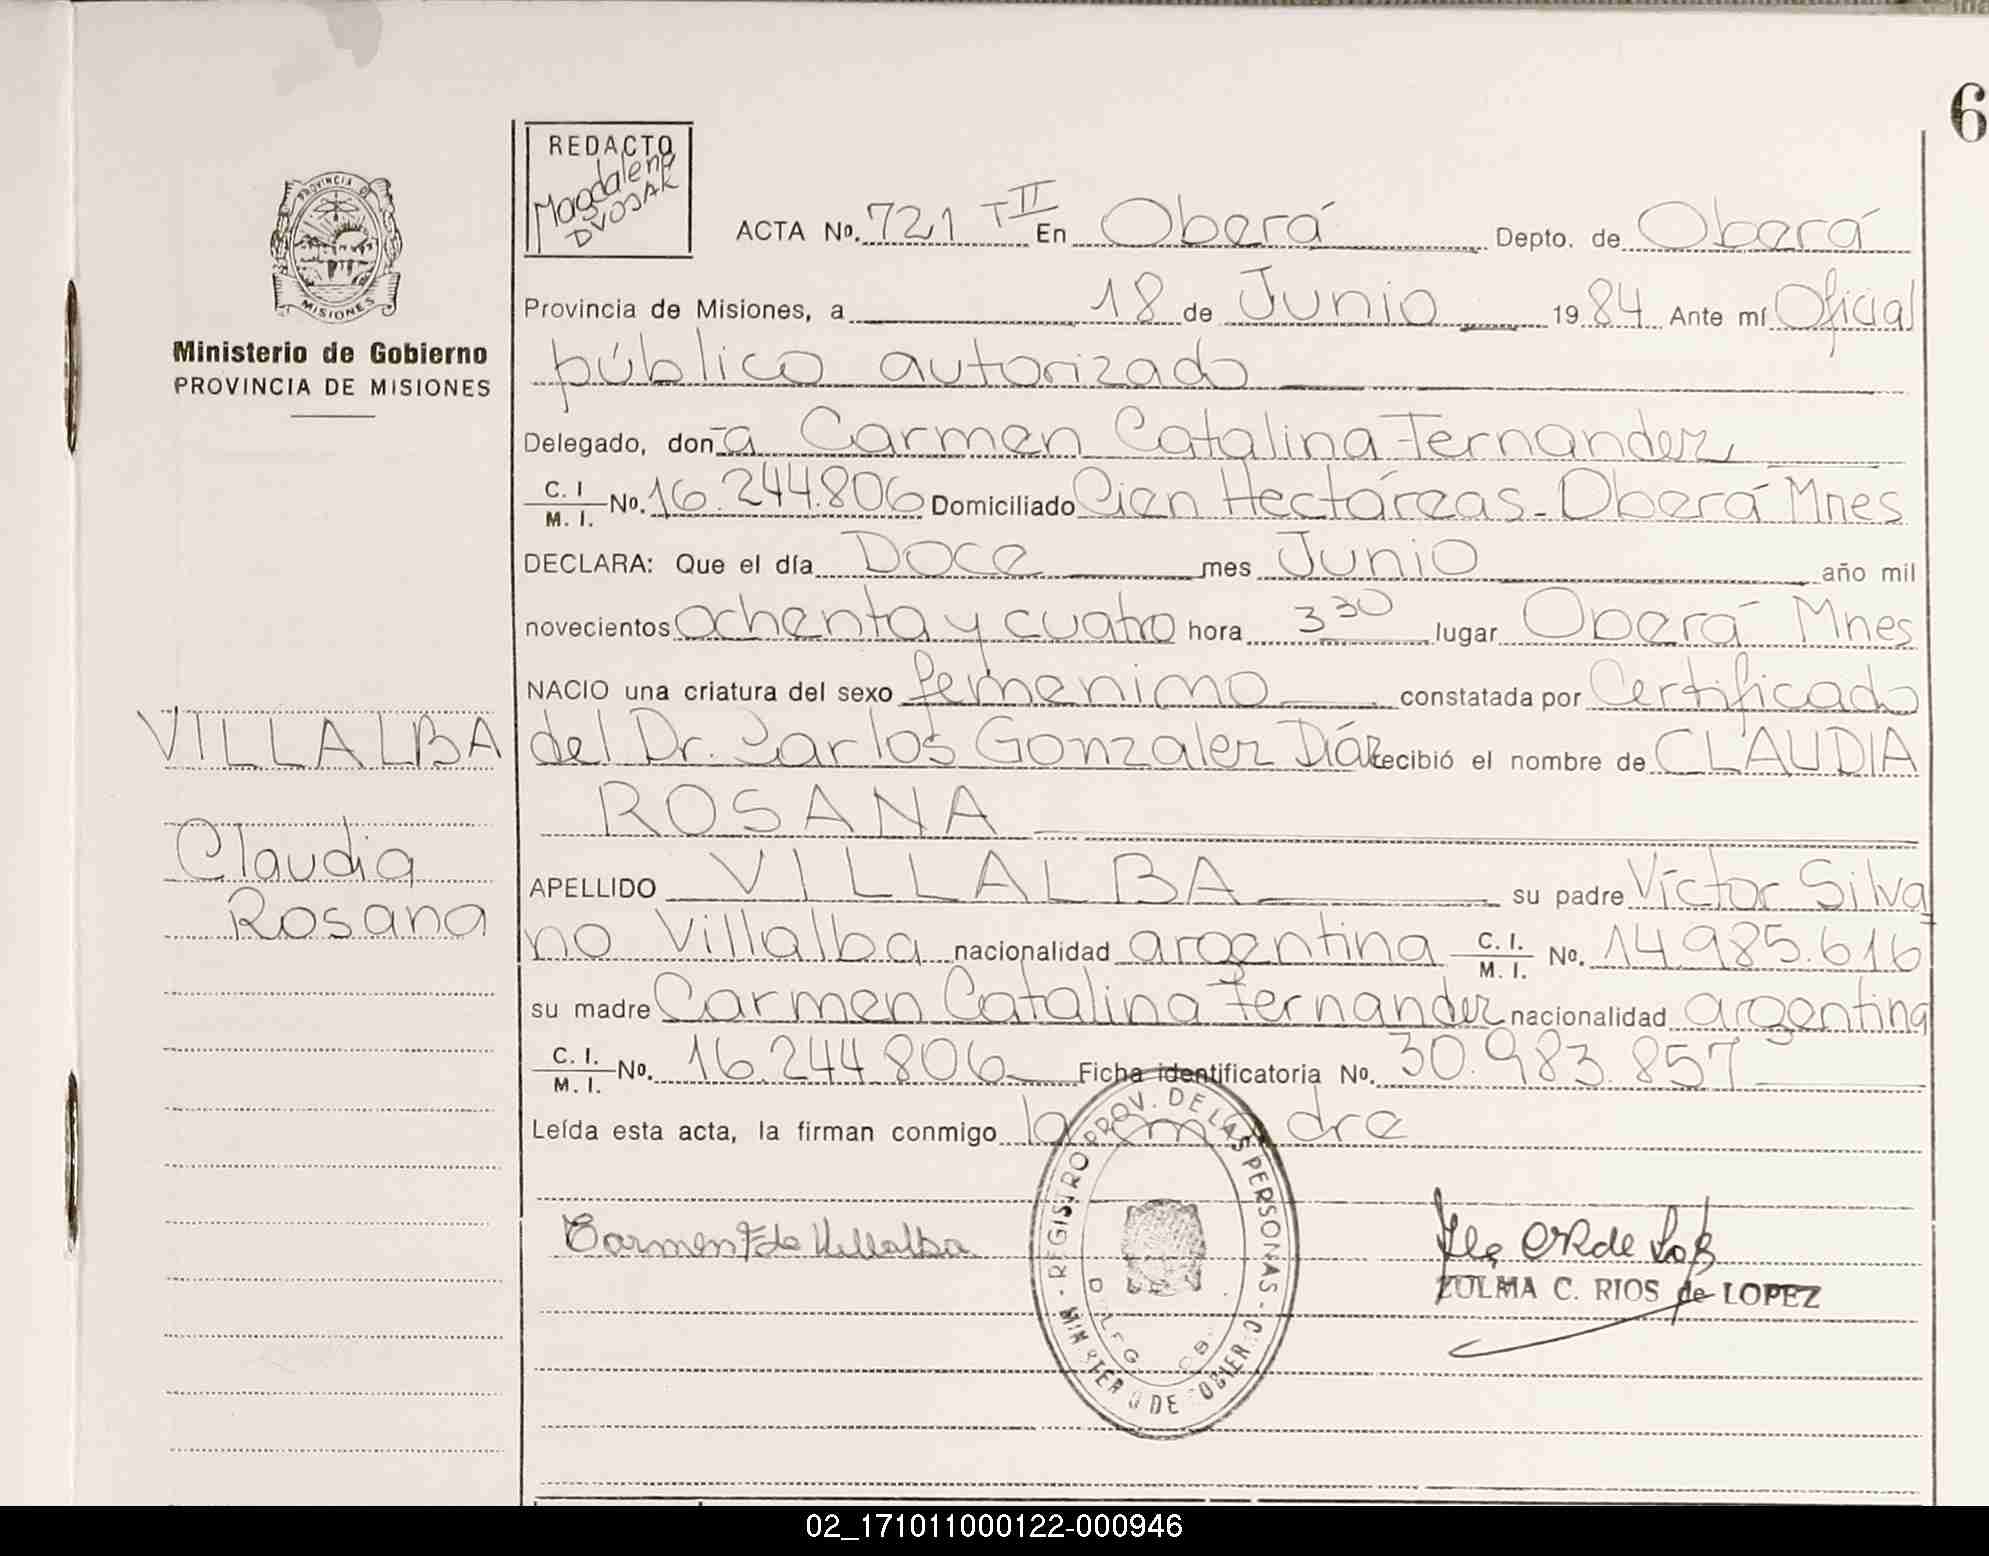 6
REDACTO
Magdalena
DVOSAK
PROVINCIA DE
MISIONES
Ministerio de Gobierno
PROVINCIA DE MISIONES
ACTA No. 721 T II En Oberá Depto. de Oberá
Provincia de Misiones, a 18 de Junio 1984 Ante mí Oficial
público autorizado
Delegado, don-a Carmen Catalina Fernandez,
C. I. M. I. No. 16.244.806 Domiciliado Cien Hectáreas - Oberá Mnes
DECLARA: Que el día Doce mes Junio año mil
novecientos ochenta y cuatro hora 3 30 lugar Oberá Mnes
NACIO una criatura del sexo femenino constatada por Certificado
del Dr. Carlos Gonzalez Díaz recibió el nombre de CLAUDIA
ROSANA
APELLIDO VILLALBA su padre Víctor Silva
no Villalba nacionalidad argentina C. I. M. I. No. 14.985.616
su madre Carmen Catalina Fernandez nacionalidad argentina
C. I. M. I. No. 16.244.806 Ficha identificatoria No. 30.983.857
Leída esta acta, la firman conmigo la madre
VILLALBA
Claudia
Rosana
Carmen F de Villalba
REGISTRO PROV. DE LAS PERSONAS
ZULMA C. RIOS de LOPEZ
02_171011000122-000946